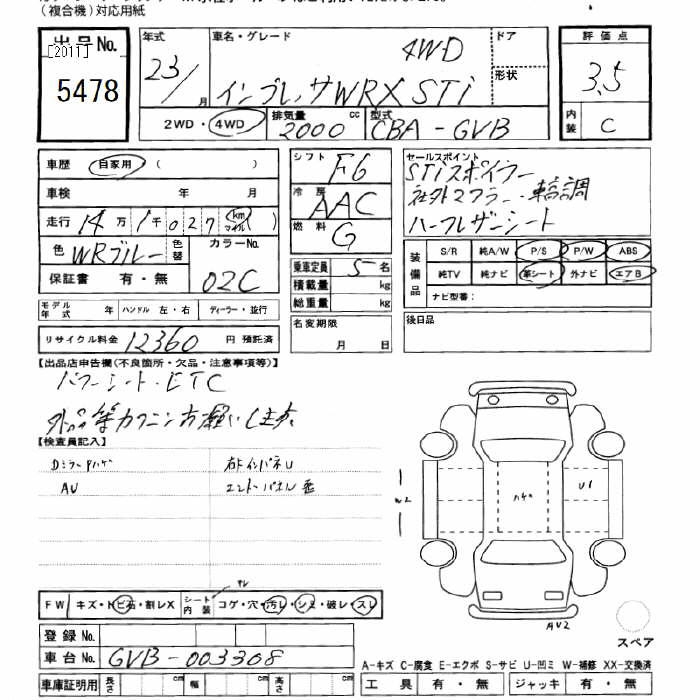 (複合機)対応用紙
出品No.
[2011]
5478
年式 車名・グレード ドア
23/ 月 4WD
インプレッサWRX STi 形状
2WD・4WD 排気量 2000 cc 型式 CBA-GVB
評価点
3.5
内装 C
車歴 自家用 ( )
車検 年 月
走行 14万1千027 (km マイル)
色 WRブルー 色替 カラーNo. 02C
保証書 有・無
モデル年式 年 ハンドル 左・右 ディーラー・並行
リサイクル料金 12360 円 預託済
シフト F6
冷房 AAC
燃料 G
乗車定員 5 名
積載量 kg
総重量 kg
名変期限
月 日
セールスポイント
STiスポイラー
社外マフラー・車高調
ハーフレザーシート
装備品 S/R 純A/W P/S P/W ABS
純TV 純ナビ 革シート 外ナビ エアB
ナビ型番:
後日品
【出品店申告欄(不良箇所・欠品・注意事項等)】
パワーシート・ETC
外品等カクニンお願いします。
【検査員記入】
Dミラーダハゲ
AU
W2
ハゲ
U1
AU2
スペア
FW キズ・トビ石・割レX シート内装 コゲ・穴・汚レ・シミ・破レ・スレ
登録No.
車台No. GVB-003308
車庫証明用 長さ cm 幅 cm 高さ cm
A-キズ C-腐食 E-エクボ S-サビ U-凹ミ W-補修 XX-交換済
工具 有・無 ジャッキ 有・無